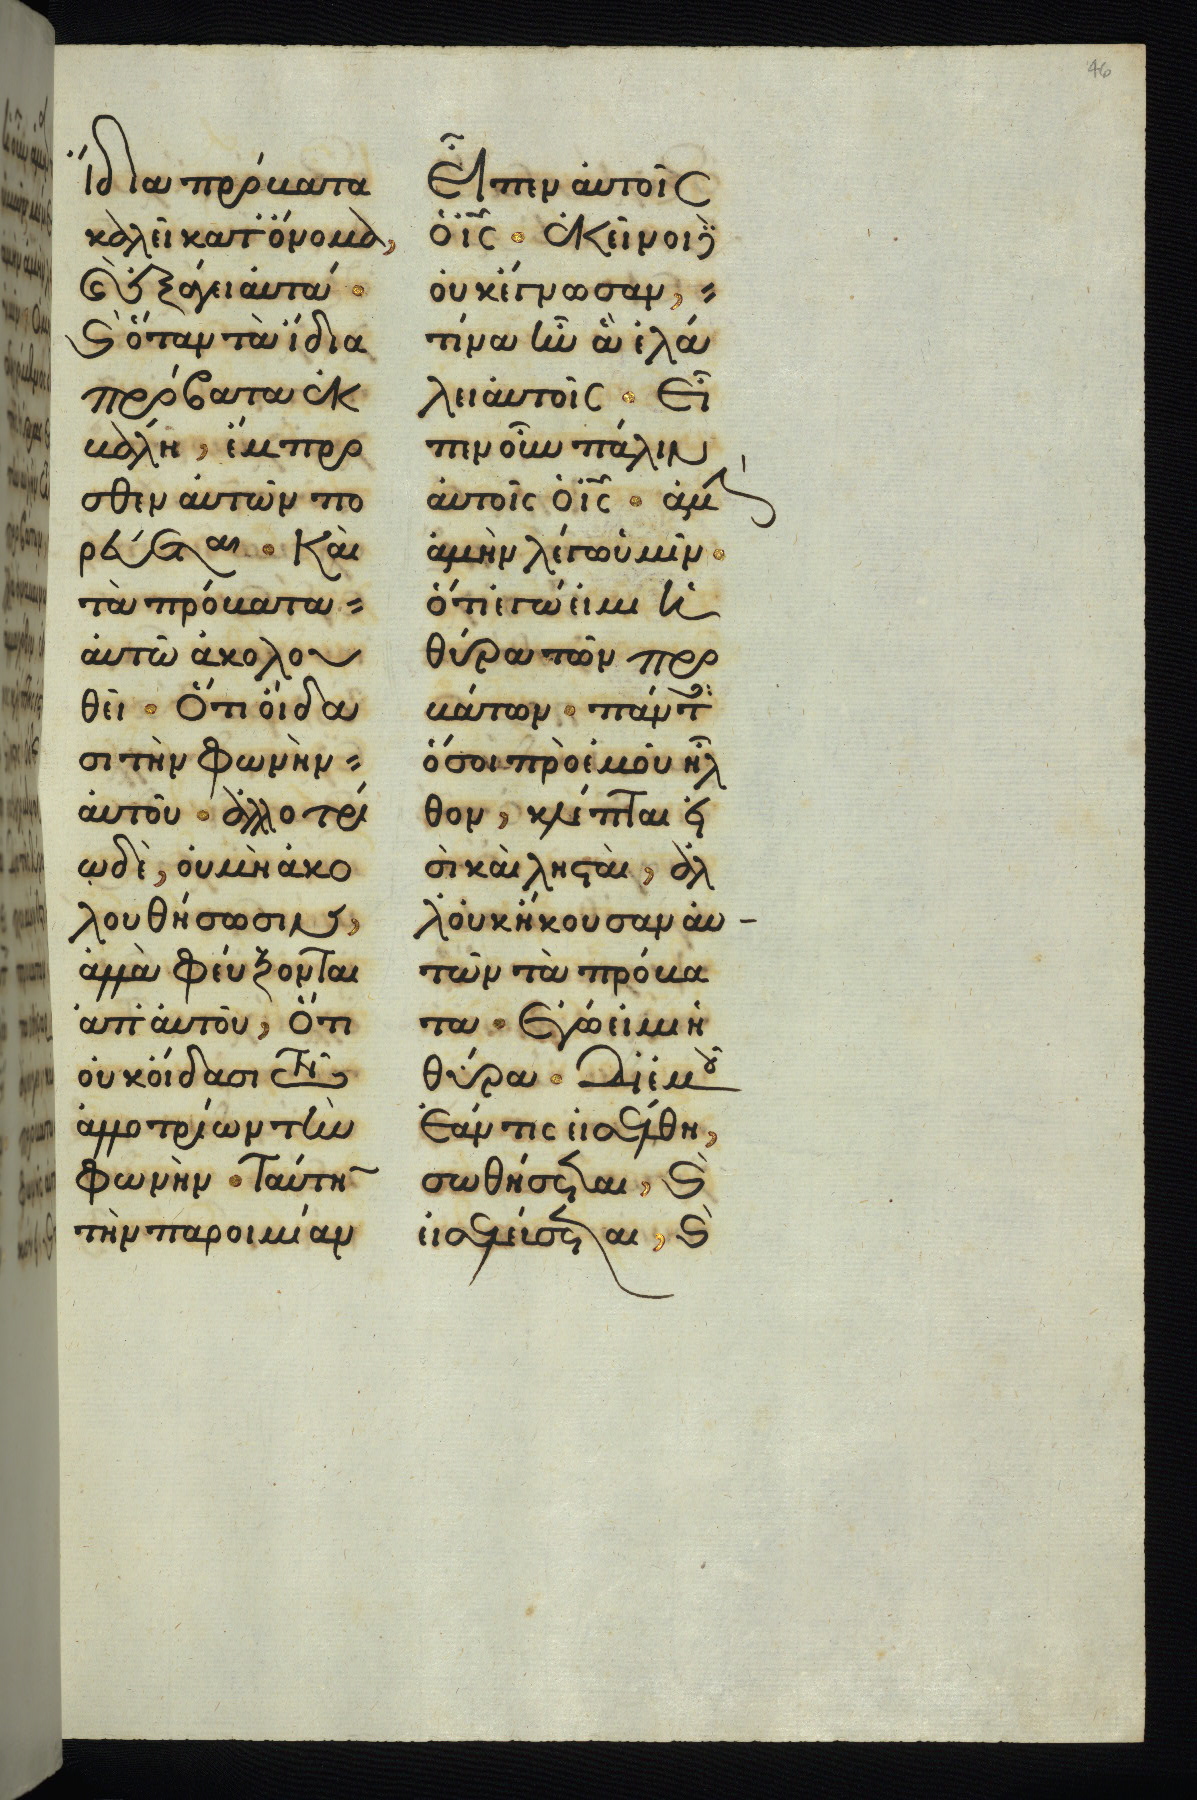 46
ἴδια πρόβατα
καλεῖ κατ' ὄνομα,
καὶ ἐξάγει αυτά ·
καὶ ὅταν τὰ ἴδια
πρόβατα ἐκ
βάλη, ἔμπρο
σθεν ἀυτῶν πο
ρέυεται · Κὰι
τὰ πρόβατα =
ἀυτῶ ἀκολου
θεῖ · Ὅτι ὄιδα
σι τὴν φωνὴν =
ἀυτοῦ · ἀλλοτρί
ω δὲ, ὀυ μὴ ἀκο
λουθήσωσιν,
ἀλλὰ φέυξονται
ἀπ' ἀυτοῦ, Ὅτι
ὀυκ ὄιδασι τῶν
ἀλλοτρίων τὴν
φωνὴν · Ταύτην
τὴν παροιμίαν
Εἶπεν ἀυτοῖς
ὁ ἰς · ἐκεῖνοι δὲ
ουκ ἔγνωσαν, =
τίνα ἦν ἃ ἐλά
λει ἀυτοῖς · Εἶ
πεν οὖν πάλιν
ἀυτοῖς ὁ ἰς · ἀμὴν
ἀμὴν λέγω ὑμῖν ·
ὅτι ἐγώ ειμι ἡ
θύρα τῶν προ
βάτων · πάντες
ὅσοι πρὸ ἐμοῦ ἦλ
θον, κλέπται ἐι
σὶ κὰι λησταὶ, ἀλ
λ' ὀυκ ἤκουσαν ἀυ -
τῶν τὰ πρόβα
τα · Εγώ ειμι ἡ
θύρα · Δι' ἐμοῦ
Εάν τις εισέλθη,
σωθήσεται, καὶ
εισελέυσεται, καὶ